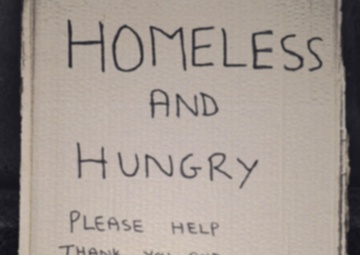 HOMELESS
AND
HUNGRY
PLEASE HELP
THANK YOU